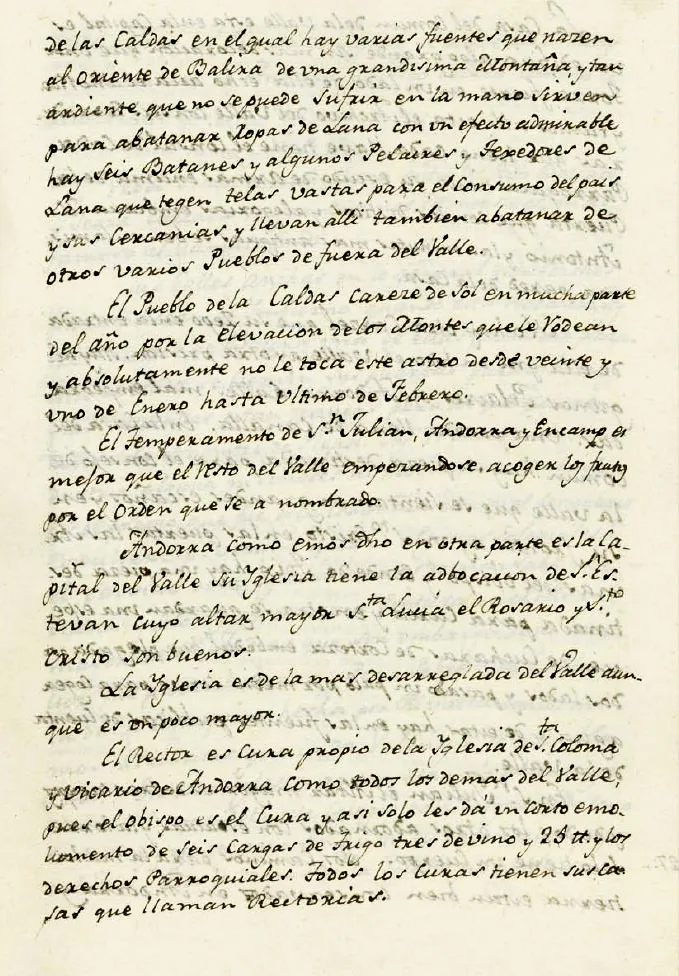 de las Caldas en el qual hay varias fuentes que nazen
al Oriente de Balira de vna grandisima Montaña, y tan
ardiente que no sepuede sufrir en la mano sirven
para abatanar Ropas de Lana con vn efecto admirable
hay seis Batanes y algunos Pelaires y Texedores de
Lana que tegen telas vastas para el Consumo del pais
y sus Cercanias y llevan alli tambien abatanar de
otros varios Pueblos de fuera del Valle.
El Pueblo dela Caldas Careze de Sol en mucha parte
del año por la Elevacion delos Montes que le Rodean
y absolutamente no le toca este astro desde veinte y
vno de Enero hasta Vltimo de Febrero.
El Temperamento de S.n Julian, Andorra y Encamp es
mejor que el Resto del Valle empezandose acoger los frutos
por el Orden que se a nombrado.
Andorra como emos dho en otra parte es la Ca-
pital del Valle su Yglesia tiene la adbocacion de S.n Es-
tevan cuyo altar mayor S.ta Lucia el Rosario y S.to
Cristo son buenos.
La Yglesia es dela mas desarreglada del Valle aun-
que es vn poco mayor.
El Rector es Cura propio dela Yglesia de S.ta Coloma
y Vicario de Andorra Como todos los demas del Valle,
pues el obispo es el Cura y asi solo les dá vn corto emo-
lumento de seis Cargas de Trigo tres de vino y 25 tt. y los
derechos Parroquiales. Todos los Curas tienen sus ca-
sas que llaman Rectorias.